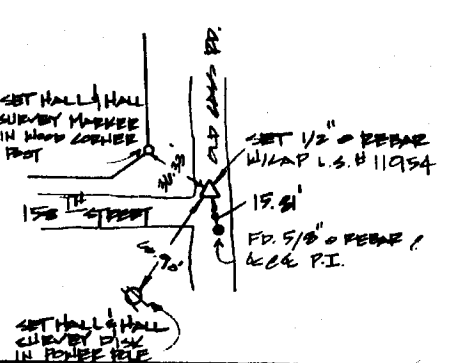 SET HALL & HALL
SURVEY MARKER
IN WOOD CORNER
POST
OLD CASS RD.
36.33'
SET 1/2" Ø REBAR
W/CAP L.S. # 11954
158TH STREET
15.81'
FD. 5/8" Ø REBAR @
P.I.
SET HALL & HALL
SURVEY DISK
IN POWER POLE